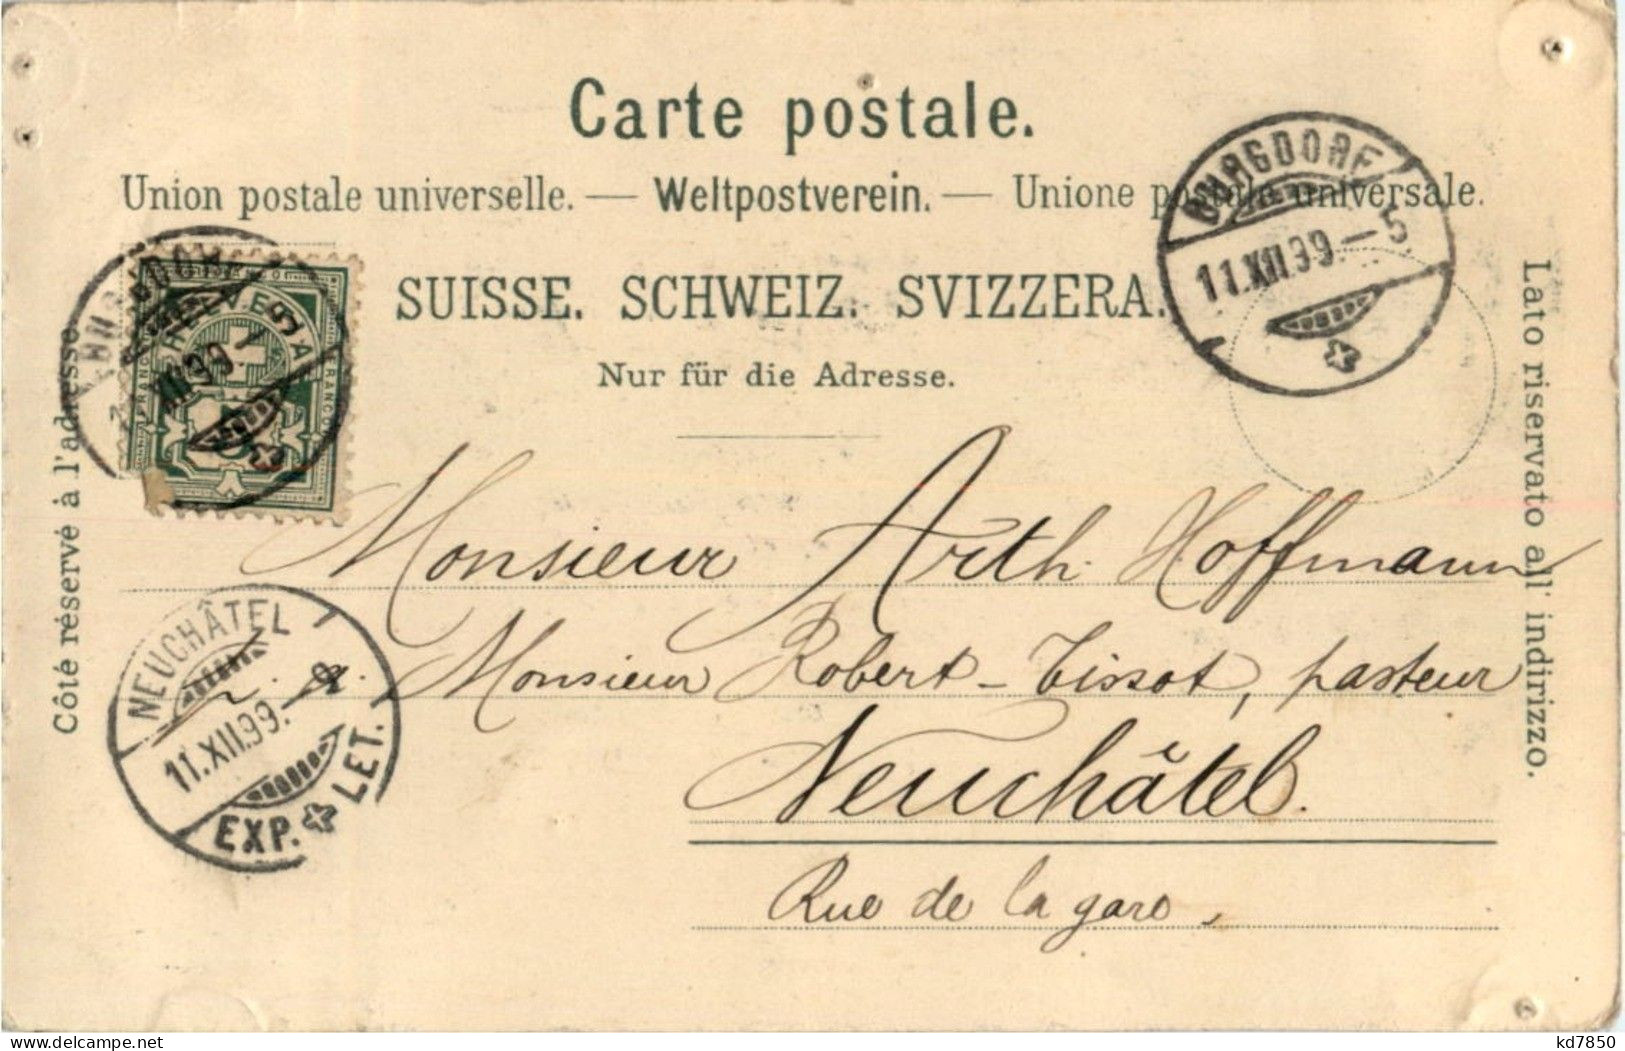 Carte postale.
Union postale universelle. — Weltpostverein. — Unione postale universale.
SUISSE. SCHWEIZ. SVIZZERA.
Nur für die Adresse.
BURGDORF
11.XII.99.—5
BURGDORF
XII.99.—
HELVETIA
FRANCO
FRANCO
5
Côté réservé à l'adresse.
Lato riservato all' indirizzo.
Monsieur Arth. Hoffmann
Monsieur Robert-Tissot, pasteur
Neuchâtel.
Rue de la gare.
NEUCHÂTEL
11.XII.99.—
EXP. LET.
kd7850